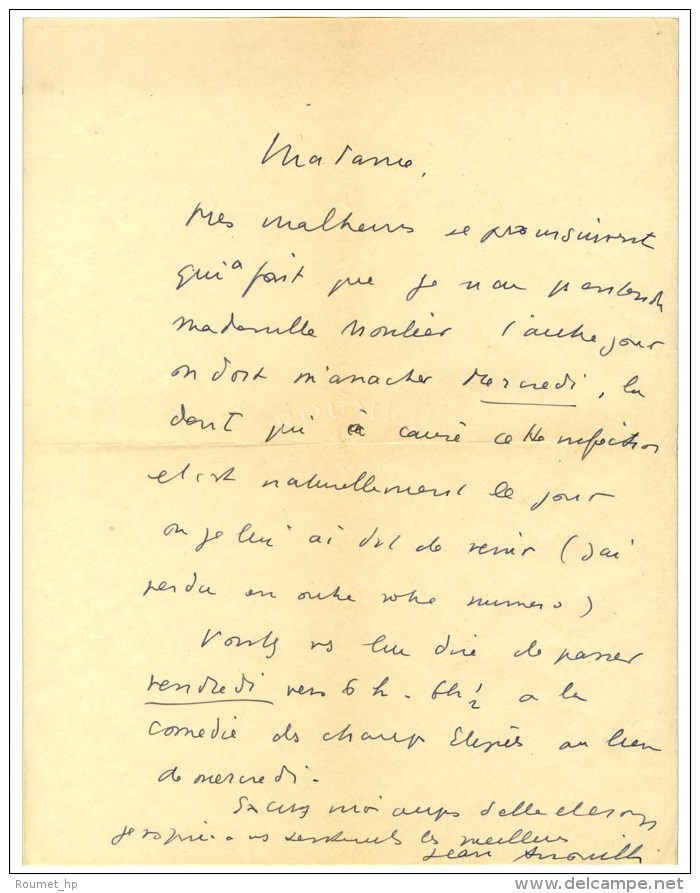 Madame,
mes malheurs se poursuivent
qui a fait que je n'ai pas entendu
mademoiselle l'autre jour
on doit m'arracher Mercredi, la
dent qui a causé cette infection
et c'est naturellement le jour
où je lui ai dit de venir (j'ai
perdu en outre votre numero)
Voulez vs lui dire de passer
vendredi vers 6 h - 6h ½ a la
comedie des champs Elysées au lieu
de mercredi.
Excusez moi auprès d'elle et
je vs prie a vs sentiments les meilleurs
Jean Anouilh
Roumet_hp
©delcampe.net